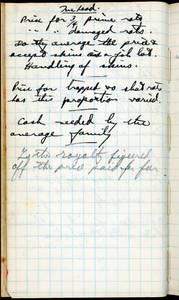 Fur Lead.
Price for 3/4 prime rats
" " " damaged rats.
do they average the price &
accept skins as a job lot
Handling of skins.
Price for trapped vs shot rats
has this proportion varied.
Cash needed by the
average family
Is the royalty figured
off the price paid for fur